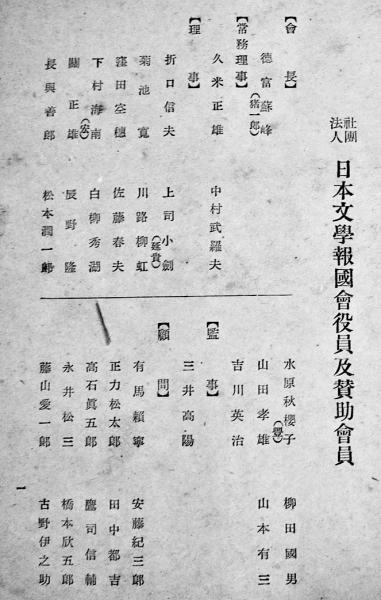 社團法人 日本文學報國會役員及贊助會員
【會長】
德富蘇峰(猪一郎)
【常務理事】
久米正雄 中村武羅夫
【理事】
折口信夫 上司小劍(延貴)
菊池寬 川路柳虹
窪田空穗 佐藤春夫
下村海南(宏) 白柳秀湖
關正雄 辰野隆
長與善郎 松本潤一郎
水原秋櫻子(豐) 柳田國男
山田孝雄 山本有三
吉川英治
【監事】
三井高陽
【顧問】
有馬賴寧 安藤紀三郎
正力松太郎 田中都吉
高石眞五郎 鷹司信輔
永井松三 橋本欣五郎
藤山愛一郎 古野伊之助
一